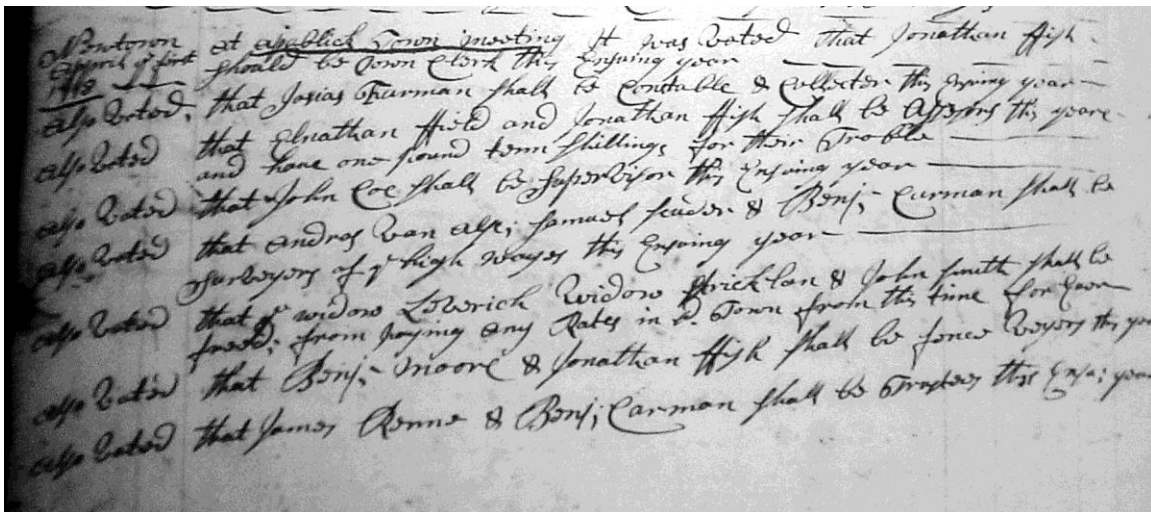 Newtown at a publick Town meeting It was voted that Jonathan ffish
Aprill ye first should be Town Clerk this Ensuing year
also voted, that Josias Furman shall be Constable & Collecter this Ensuing year
also voted that Elnathan ffield and Jonathan ffish shall be Assesors this yeare
and have one pound tenn shillings for their Troble
also voted that John Coe shall be Supervisor this Ensuing year
also voted that andros van alst; Samuel Scuder & Benj; Carman shall be
surveyers of ye high wayes this Ensuing year
also voted that ye widow Leverich Widow Stricklan & John smith shall be
freed; from paying any Rates in sd. Town from this time for Ever
also voted that Benj; moore & Jonathan ffish shall be fence veyers this year
also voted that James Renne & Benj; Carman shall be Trustees this Ensu; year